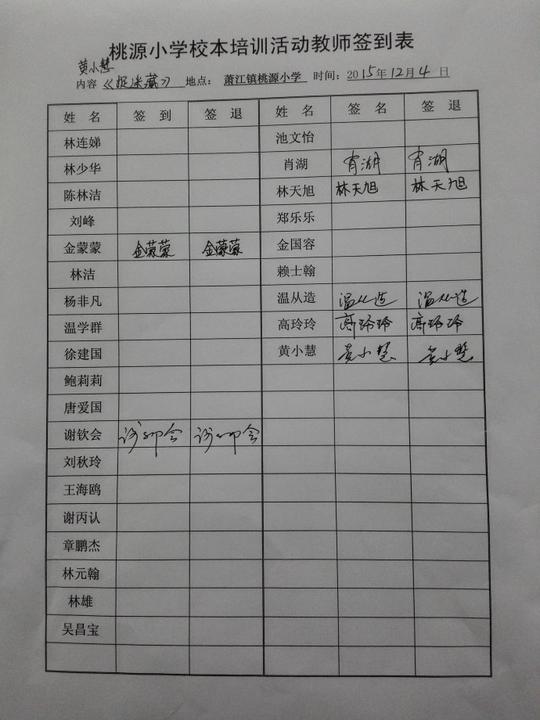 桃源小学校本培训活动教师签到表
黄小慧
内容 《捉迷藏》 地点： 萧江镇桃源小学 时间：2015年12月4日
姓 名 签 到 签 退 姓 名 签 名 签 退
林连娣 池文怡
林少华 肖湖 肖湖 肖湖
陈林洁 林天旭 林天旭 林天旭
刘峰 郑乐乐
金蒙蒙 金蒙蒙 金蒙蒙 金国容
林洁 赖士翰
杨非凡 温从造 温从造 温从造
温学群 高玲玲 高玲玲 高玲玲
徐建国 黄小慧 黄小慧 黄小慧
鲍莉莉
唐爱国
谢钦会 谢钦会 谢钦会
刘秋玲
王海鸥
谢丙认
章鹏杰
林元翰
林雄
吴昌宝